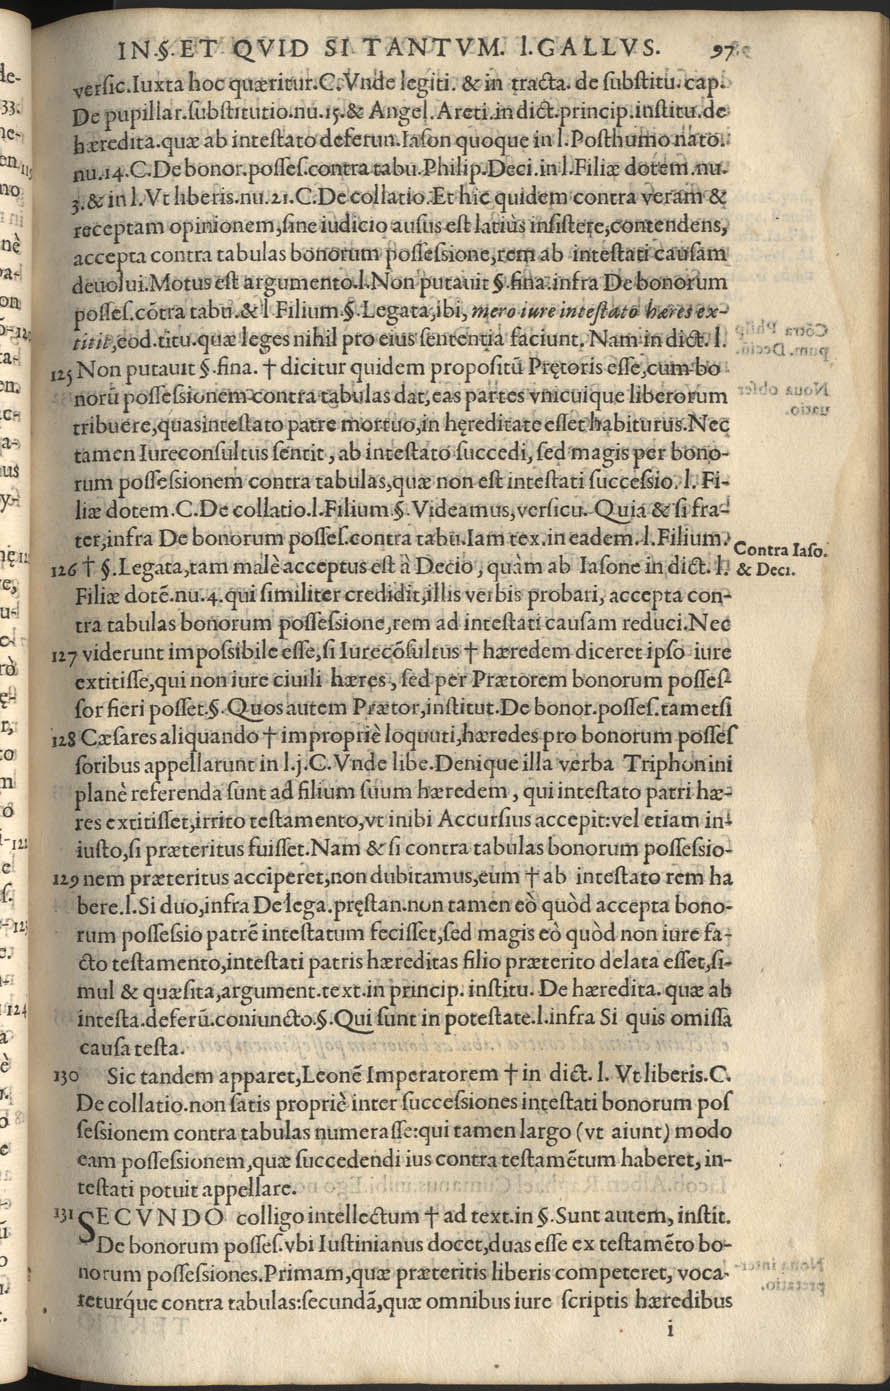 IN.§.ET QVID SI TANTVM. l.GALLVS. 97.
versic.Iuxta hoc quæritur.C.Vnde legiti. & in tracta. de substitu. cap.
De pupillar.substitutio.nu.15.& Angel. Areti.in dict.princip.institu.de
hæredita.quæ ab intestato deferun.Iason quoque in l.Posthumo nato.
nu.14.C.De bonor.posses.contra tabu.Philip.Deci.in l.Filiæ dotem.nu.
3.& in l.Vt liberis.nu.21.C.De collatio.Et hic quidem contra veram &
receptam opinionem,sine iudicio ausus est latiùs insistere,contendens,
accepta contra tabulas bonorum possessione,rem ab intestati causam
deuolui.Motus est argumento.l.Non putauit §.fina.infra De bonorum
posses.cōtra tabu.& l Filium.§.Legata,ibi, mero iure intestato hæres ex-
titit,eod.titu.quæ leges nihil pro eius sententia faciunt. Nam in dict. l.
125 Non putauit §.fina. † dicitur quidem propositū Prętoris esse,cum bo
norū possessionem contra tabulas dat,eas partes vnicuique liberorum
tribuere,quasintestato patre mortuo,in hęreditate esset habiturus.Nec
tamen Iureconsultus sentit, ab intestato succedi, sed magis per bono-
rum possessionem contra tabulas,quæ non est intestati successio. l. Fi-
liæ dotem.C.De collatio.l.Filium.§.Videamus,versicu. Quia & si fra-
ter,infra De bonorum posses.contra tabu.Iam tex.in eadem.l.Filium.
Contra Iaso.
& Deci.
126 † §.Legata,tam malè acceptus est à Decio, quàm ab Iasone in dict. l.
Filiæ dotē.nu.4.qui similiter credidit,illis verbis probari, accepta con-
tra tabulas bonorum possessione,rem ad intestati causam reduci.Nec
127 viderunt impossibile esse,si Iurecōsultus † hæredem diceret ipso iure
extitisse,qui non iure ciuili hæres, sed per Prætorem bonorum posses-
sor fieri posset.§.Quos autem Prætor,institut.De bonor.posses.tametsi
128 Cæsares aliquando † impropriè loquuti,hæredes pro bonorum posses
soribus appellarunt in l.j.C.Vnde libe.Denique illa verba Triphonini
planè referenda sunt ad filium suum hæredem, qui intestato patri hæ-
res extitisset,irrito testamento,vt inibi Accursius accepit:vel etiam in-
iusto,si præteritus fuisset.Nam & si contra tabulas bonorum possessio-
129 nem præteritus acciperet,non dubitamus,eum † ab intestato rem ha
bere.l.Si duo,infra De lega.pręstan.non tamen eò quòd accepta bono-
rum possessio patrē intestatum fecisset,sed magis eò quòd non iure fa-
cto testamento,intestati patris hæreditas filio præterito delata esset,si-
mul & quæsita,argument.text.in princip. institu. De hæredita. quæ ab
intesta.deferū.coniuncto.§.Qui sunt in potestate.l.infra Si quis omissa
causa testa.
130 Sic tandem apparet,Leonē Imperatorem † in dict. l. Vt liberis.C.
De collatio.non satis propriè inter successiones intestati bonorum pos
sessionem contra tabulas numerasse:qui tamen largo (vt aiunt) modo
eam possessionem,quæ succedendi ius contra testamētum haberet, in-
testati potuit appellare.
131 SECVNDO colligo intellectum † ad text.in §.Sunt autem, instit.
De bonorum posses.vbi Iustinianus docet,duas esse ex testamēto bo-
norum possessiones.Primam,quæ præteritis liberis competeret, voca-
returq́ue contra tabulas:secundā,quæ omnibus iure scriptis hæredibus
i